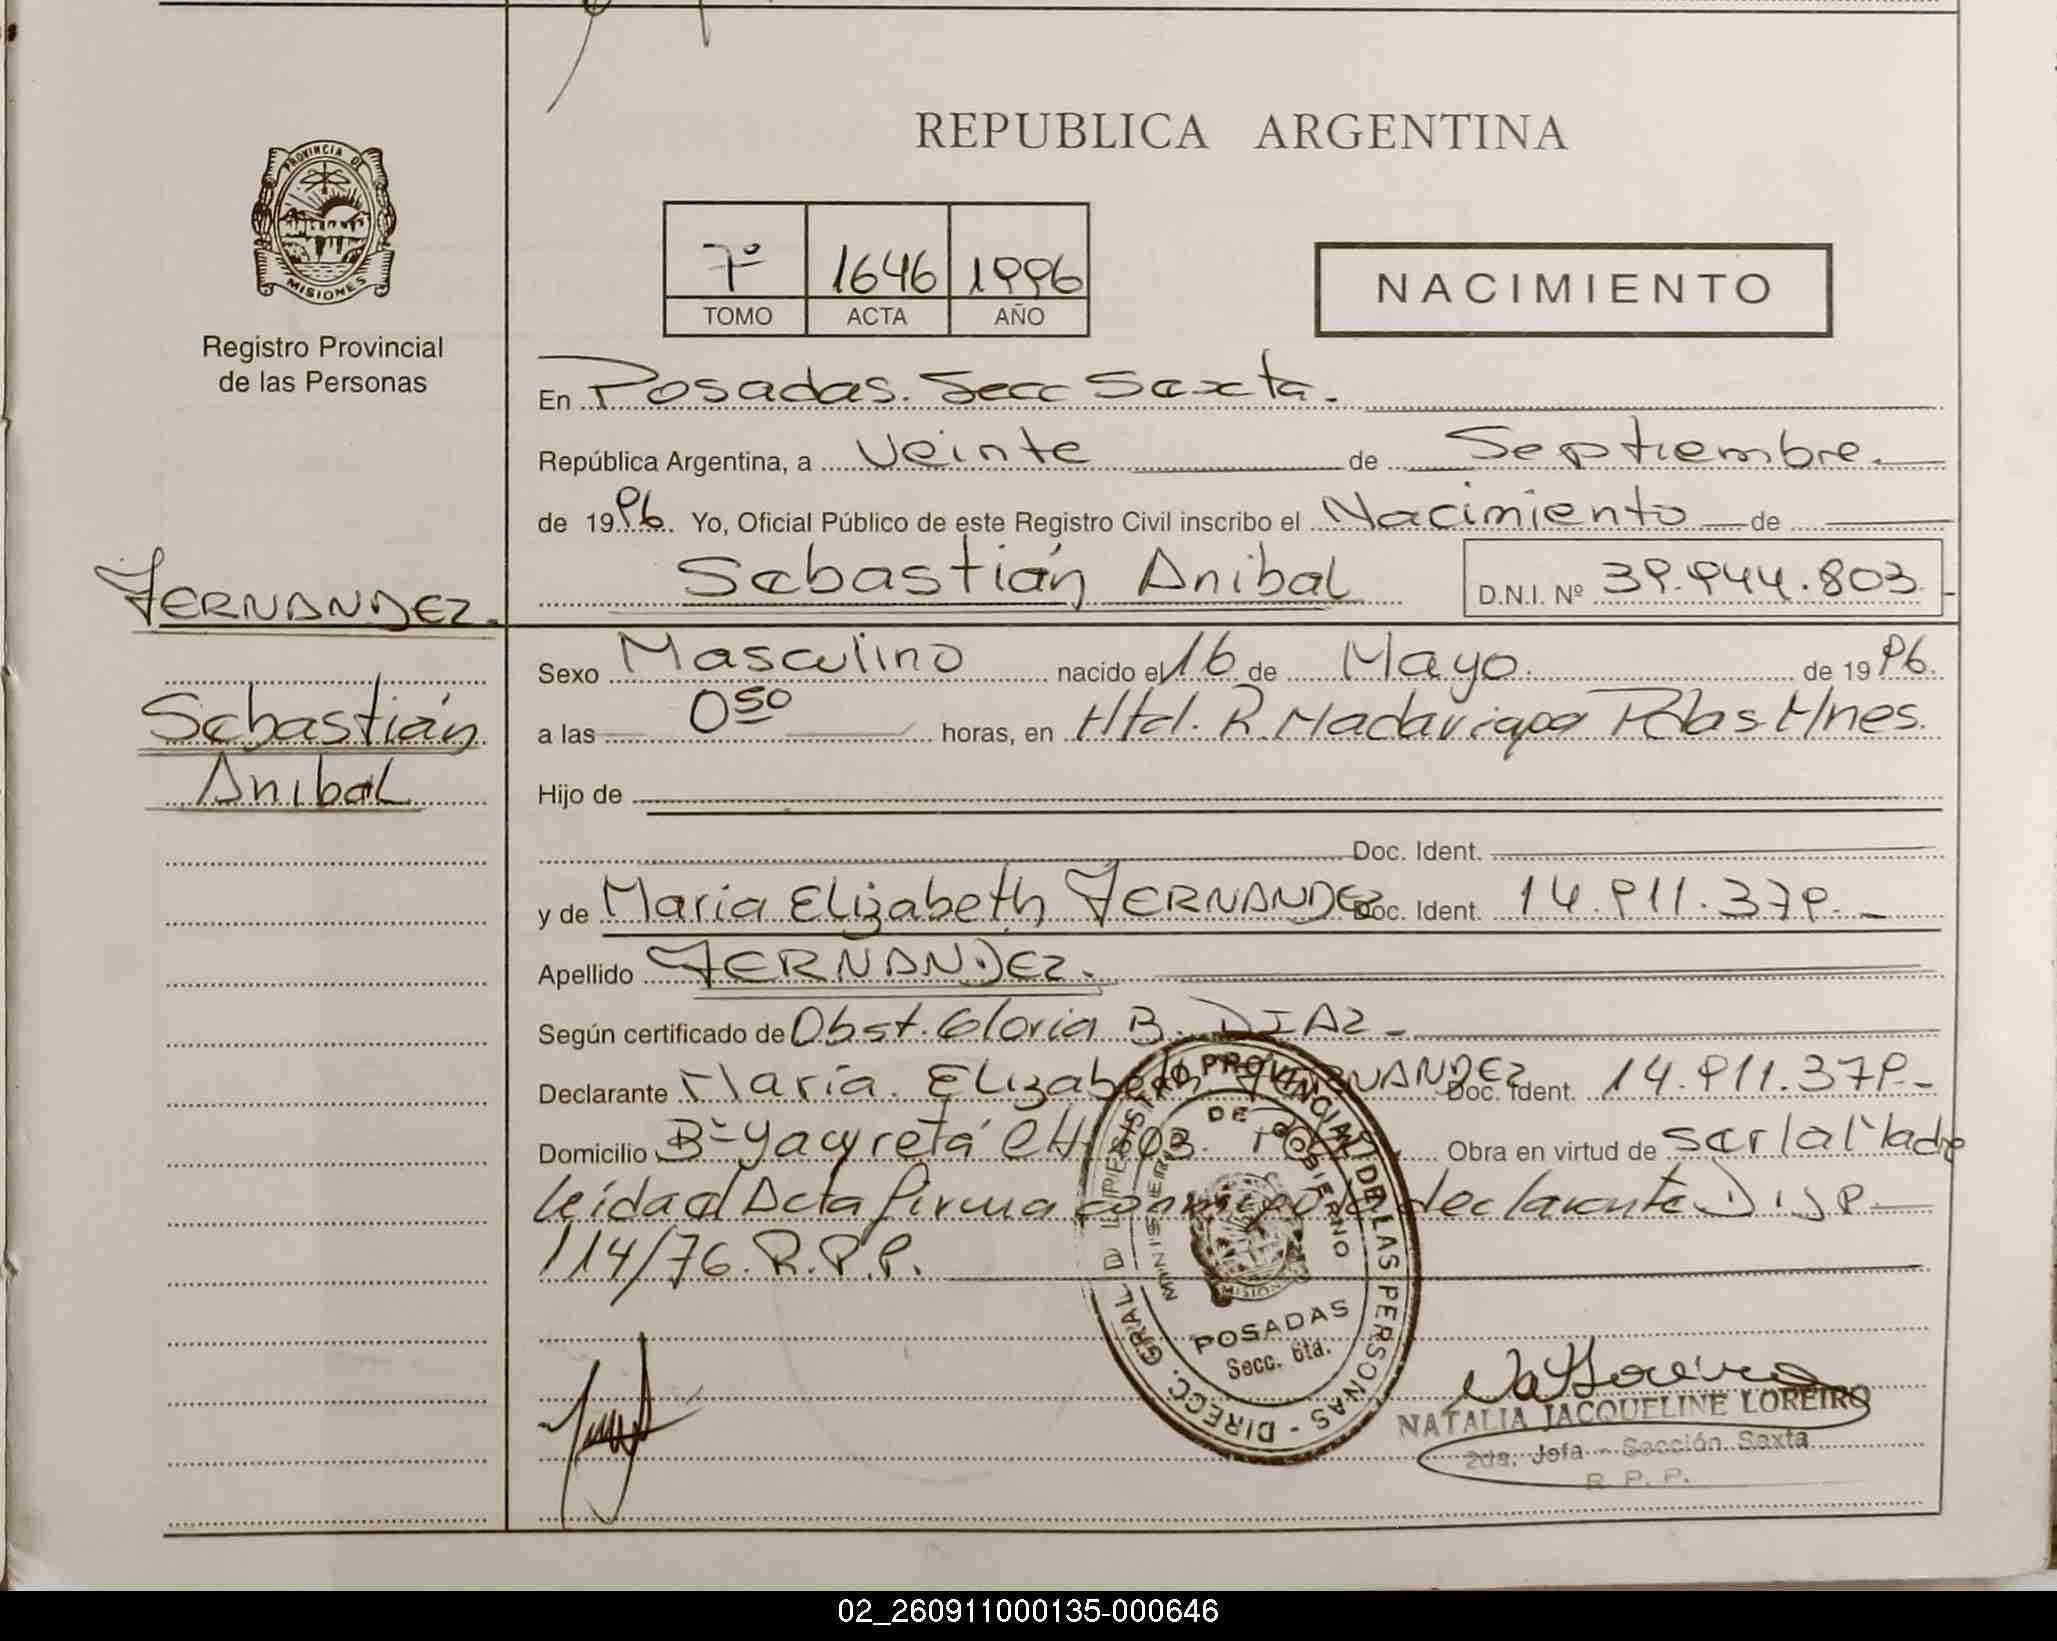 PROVINCIA DE
MISIONES
Registro Provincial
de las Personas
FERNANDEZ.
Sebastián
Anibal
REPUBLICA ARGENTINA
7º 1646 1996
TOMO ACTA AÑO
NACIMIENTO
En Posadas. Secc Sexta.
República Argentina, a Veinte de Septiembre.
de 1996. Yo, Oficial Público de este Registro Civil inscribo el Nacimiento de
Sebastián Anibal D.N.I. Nº 39.944.803.
Sexo Masculino nacido el 16 de Mayo. de 1996.
a las 0 50 horas, en Htal. R. Madariaga Pdas Mnes.
Hijo de
Doc. Ident.
y de María Elizabeth FERNANDEZ Doc. Ident. 14.911.379.
Apellido FERNANDEZ.
Según certificado de Obst. Gloria B. DIAZ
Declarante María. Elizabeth FERNANDEZ Doc. Ident. 14.911.379.
Domicilio Bº Yacyretá CH 103. Obra en virtud de ser la madre
leída el Acta firma conmigo la declarante Disp
114/76. R.P.P.
DIRECC. GRAL DEL REGISTRO PROVINCIAL DE LAS PERSONAS
MINISTERIO DE GOBIERNO
MISIONES
POSADAS
Secc. 6ta.
NATALIA JACQUELINE LOREIRO
2da. Jefa - Sección Sexta
R. P. P.
02_260911000135-000646